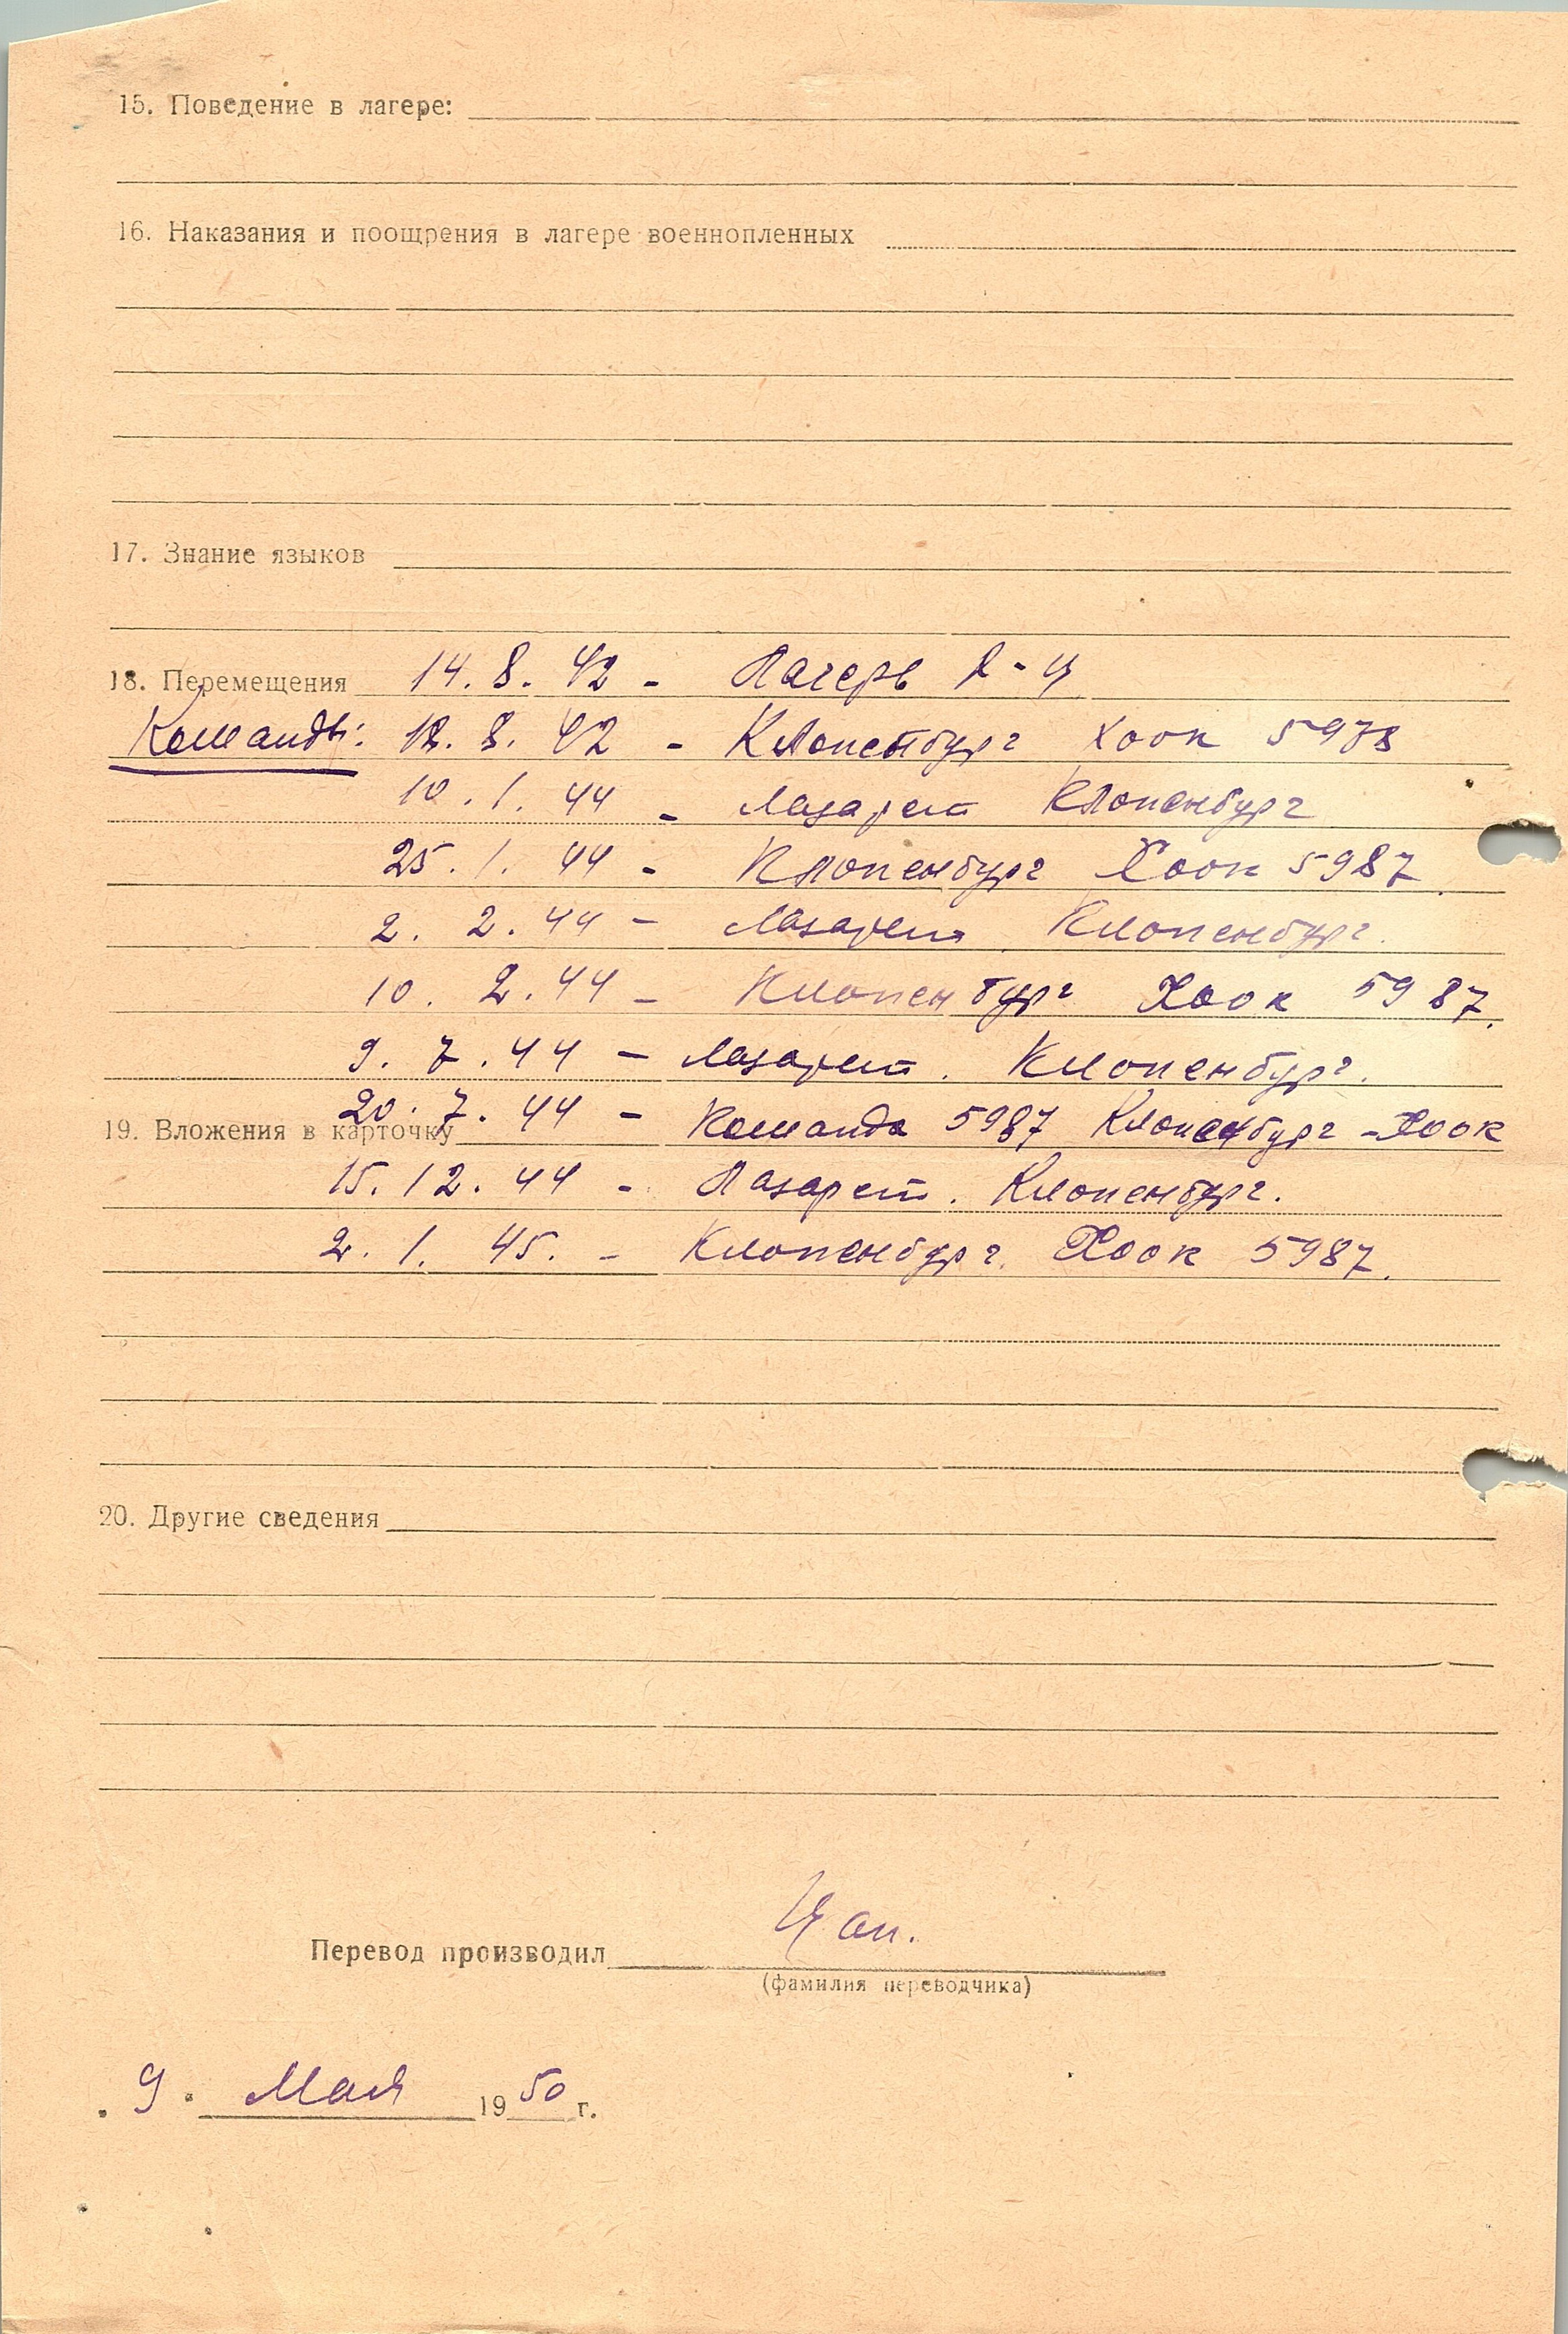 15. Поведение в лагере:
16. Наказания и поощрения в лагере военнопленных
17. Знание языков
18. Перемещения 14. 8. 42 - Лагерь X-Ц
Команды: 18. 8. 42 - Клопенбург Хоок 5978
10. 1. 44 - Лазарет Клопенбург
25. 1. 44 - Клопенбург Хоок 5987
2. 2. 44 - Лазарет Клопенбург.
10. 2. 44 - Клопенбург Хоок 5987.
9. 7. 44 - Лазарет. Клопенбург.
20. 7. 44 - Команда 5987 Клопенбург - Хоок
19. Вложения в карточку
15. 12. 44 - Лазарет. Клопенбург.
2. 1. 45. - Клопенбург. Хоок 5987.
20. Другие сведения
Перевод производил
(фамилия переводчика)
9. Мая 1950 г.